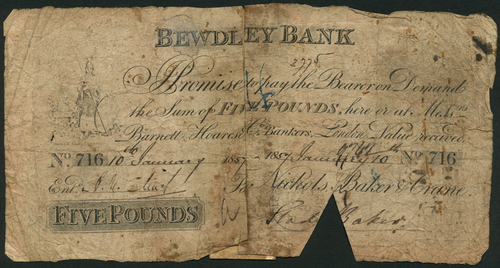 BEWDLEY BANK
2775
I Promise to pay the Bearer on Demand
the Sum of FIVE POUNDS, here or at Mess.rs
Barnett, Hoares & Co. Bankers, London, Value received
No. 716 10th January 1887 January 10th No. 716
Ent.
For Nichols, Baker & Crane
FIVE POUNDS
Baker